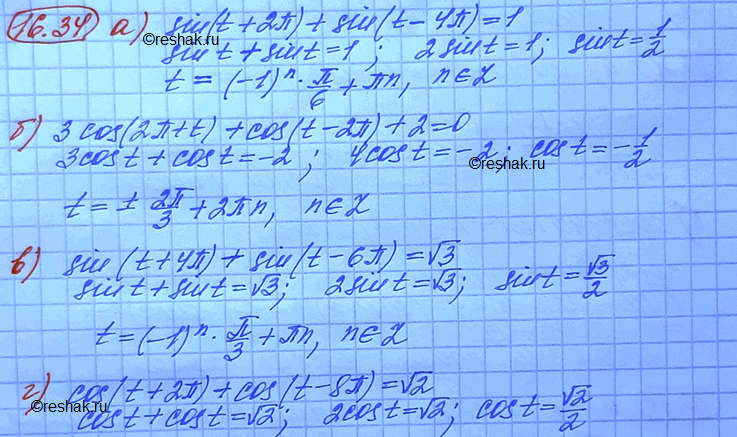 16.34 а) sin(t+2π)+sin(t-4π)=1
©reshak.ru
sint+sint=1; 2sint=1; sint=1/2
t=(-1)ⁿ·π/6+πn, n∈Z
б) 3cos(2π+t)+cos(t-2π)+2=0
3cost+cost=-2; 4cost=-2; cost=-1/2
©reshak.ru
t=±2π/3+2πn, n∈Z
в) sin(t+4π)+sin(t-6π)=√3
sint+sint=√3; 2sint=√3; sint=√3/2
t=(-1)ⁿ·π/3+πn, n∈Z
г) cos(t+2π)+cos(t-8π)=√2
©reshak.ru
cost+cost=√2; 2cost=√2; cost=√2/2
©reshak.ru